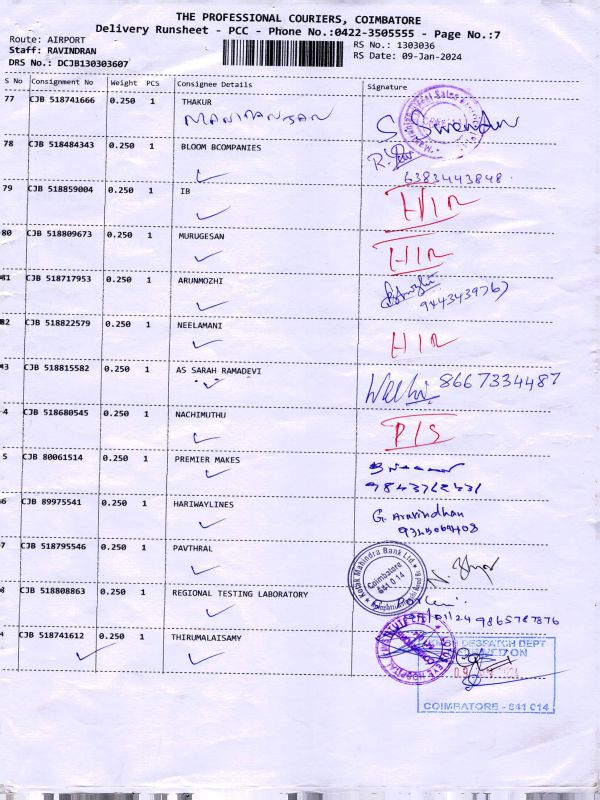 THE PROFESSIONAL COURIERS, COIMBATORE
Delivery Runsheet - PCC - Phone No.:0422-3505555 - Page No.:7
Route: AIRPORT
Staff: RAVINDRAN
DRS No.: DCJB130303607
RS No.: 1303036
RS Date: 09-Jan-2024
S No Consignment No Weight PCS Consignee Details Signature
77 CJB 518741666 0.250 1 THAKUR
78 CJB 518484343 0.250 1 BLOOM BCOMPANIES
6383443848
79 CJB 518859004 0.250 1 IB
80 CJB 518809673 0.250 1 MURUGESAN
81 CJB 518717953 0.250 1 ARUNMOZHI
82 CJB 518822579 0.250 1 NEELAMANI
43 CJB 518815582 0.250 1 AS SARAH RAMADEVI
8667334487
4 CJB 518680545 0.250 1 NACHIMUTHU
P/S
5 CJB 80061514 0.250 1 PREMIER MAKES
6 CJB 89975541 0.250 1 HARIWAYLINES
G. Aravindhan
7 CJB 518795546 0.250 1 PAVTHRAL
Kotak Mahindra Bank Ltd.
Coimbatore
641 014
8 CJB 518808863 0.250 1 REGIONAL TESTING LABORATORY
9865787876
CJB 518741612 0.250 1 THIRUMALAISAMY
DESPATCH DEPT
COIMBATORE - 641 014